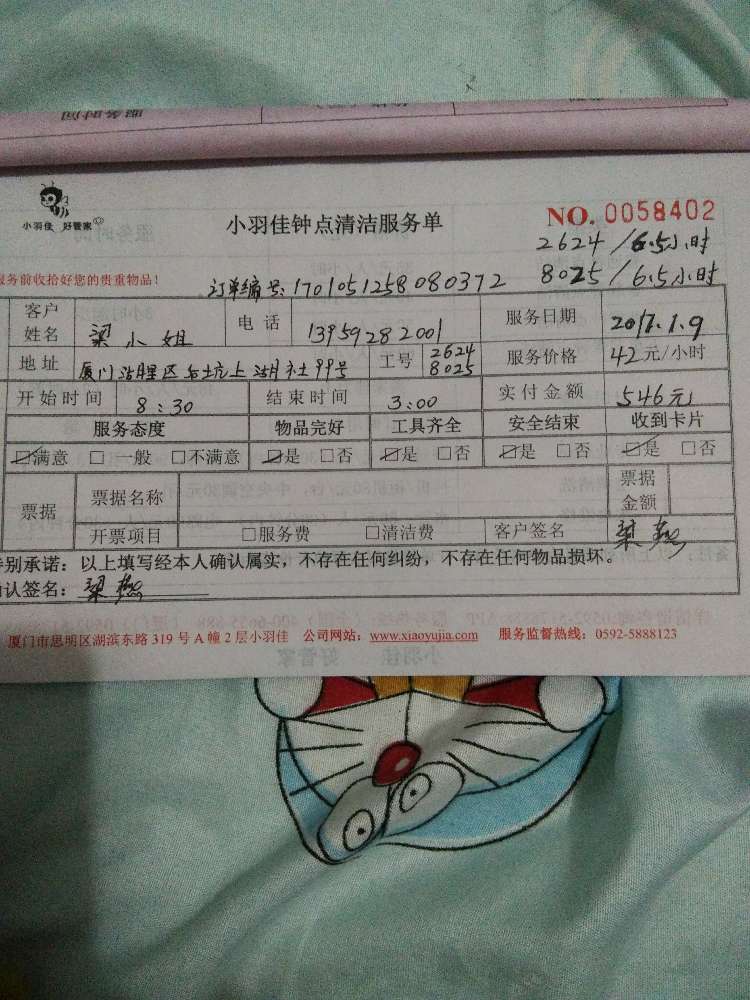 小羽佳 好管家
小羽佳钟点清洁服务单
NO. 0058402
2624/6.5小时
服务前收拾好您的贵重物品!
订单编号:1701051258080372
8025/6.5小时
客户姓名 梁小姐 电话 13959282001 服务日期 2017.1.9
地址 厦门 区后坑上 社99号 工号 2624 8025 服务价格 42元/小时
开始时间 8:30 结束时间 3:00 实付金额 546元
服务态度 物品完好 工具齐全 安全结束 收到卡片
☑满意 □一般 □不满意 ☑是 □否 ☑是 □否 ☑是 □否 ☑是 □否
票据 票据名称 票据金额
开票项目 □服务费 □清洁费 客户签名 梁燕
特别承诺:以上填写经本人确认属实,不存在任何纠纷,不存在任何物品损坏。
确认签名:梁燕
厦门市思明区湖滨东路319号A幢2层小羽佳 公司网站:www.xiaoyujia.com 服务监督热线:0592-5888123